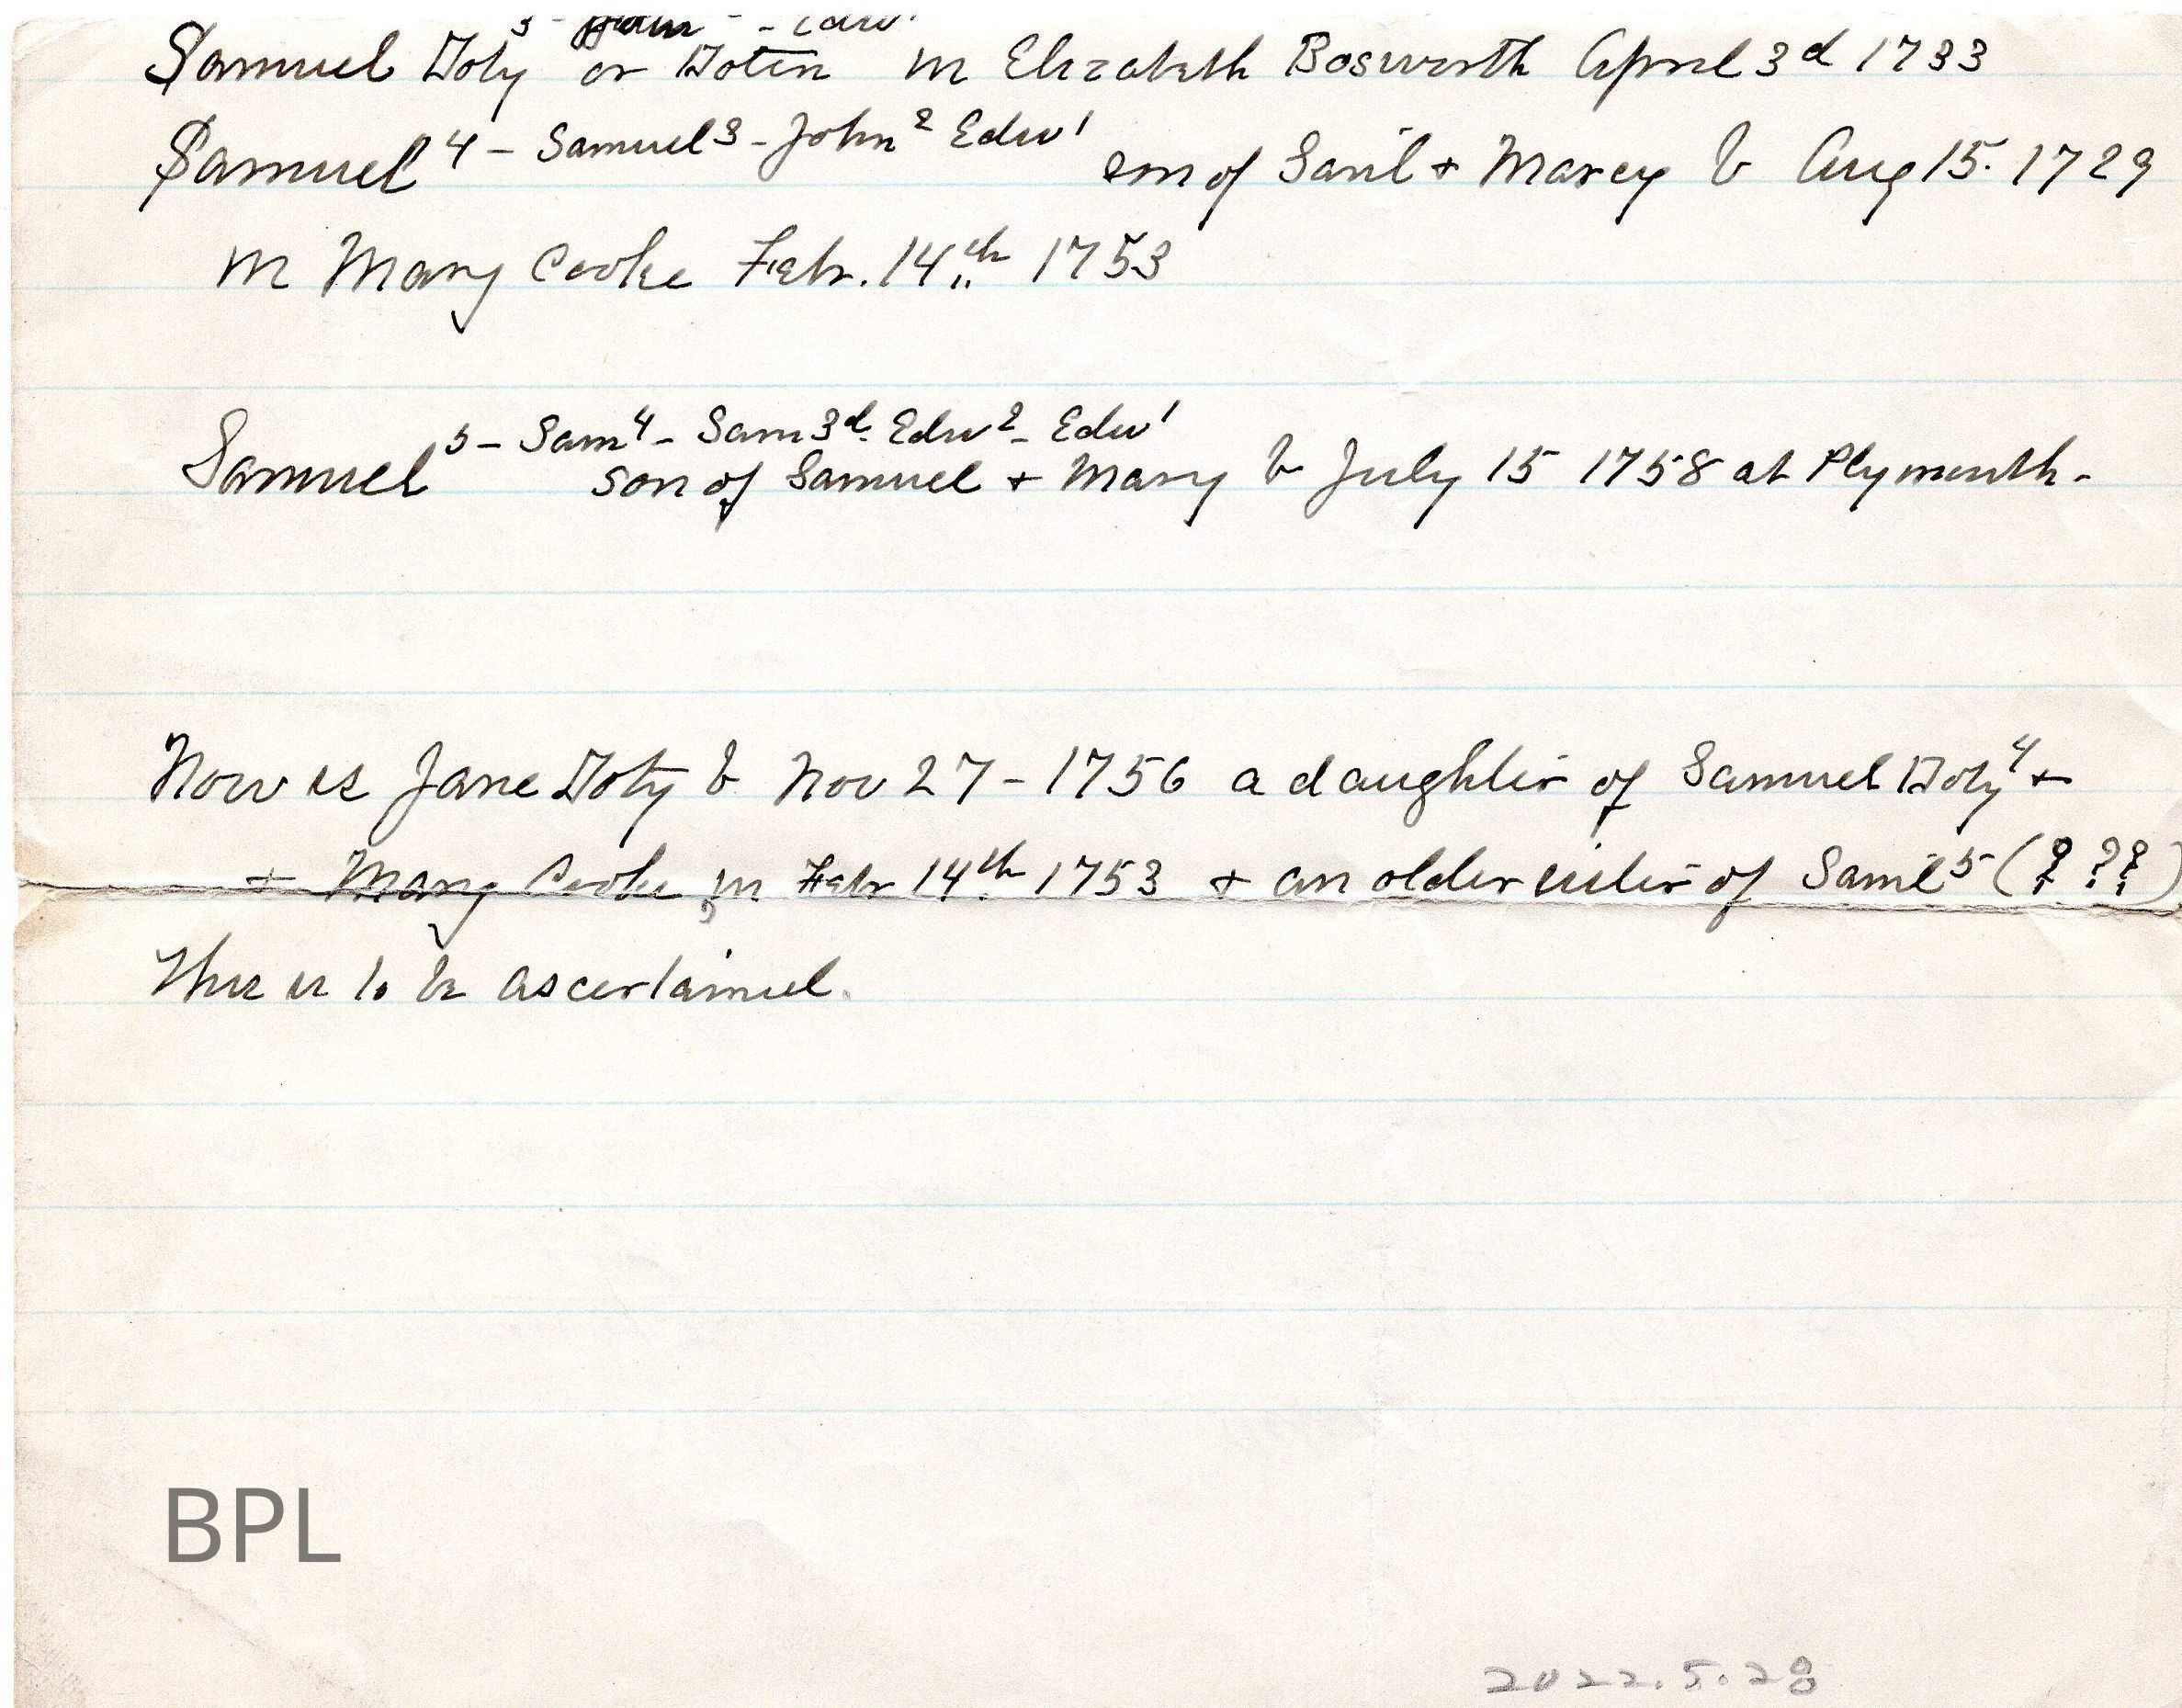 Samuel Doty ³ - - Edw¹
or Doten m Elizabeth Bosworth April 3d 1733
Samuel ⁴ - Samuel ³ - John ² Edw ¹ son of Saml + Marcy b Aug 15. 1729
m Mary Cooke Febr. 14th 1753
Samuel ⁵ - Sam ⁴ - Sam 3d - Edw ² - Edw ¹
son of Samuel + Mary b July 15 1758 at Plymouth -
Now is Jane Doty b Nov 27 - 1756 a daughter of Samuel Doty ⁴ +
+ Mary Cooke, m Febr 14th 1753 + an older sister of Saml ⁵ (? ??)
This is to be ascertained.
BPL
2022.5.28